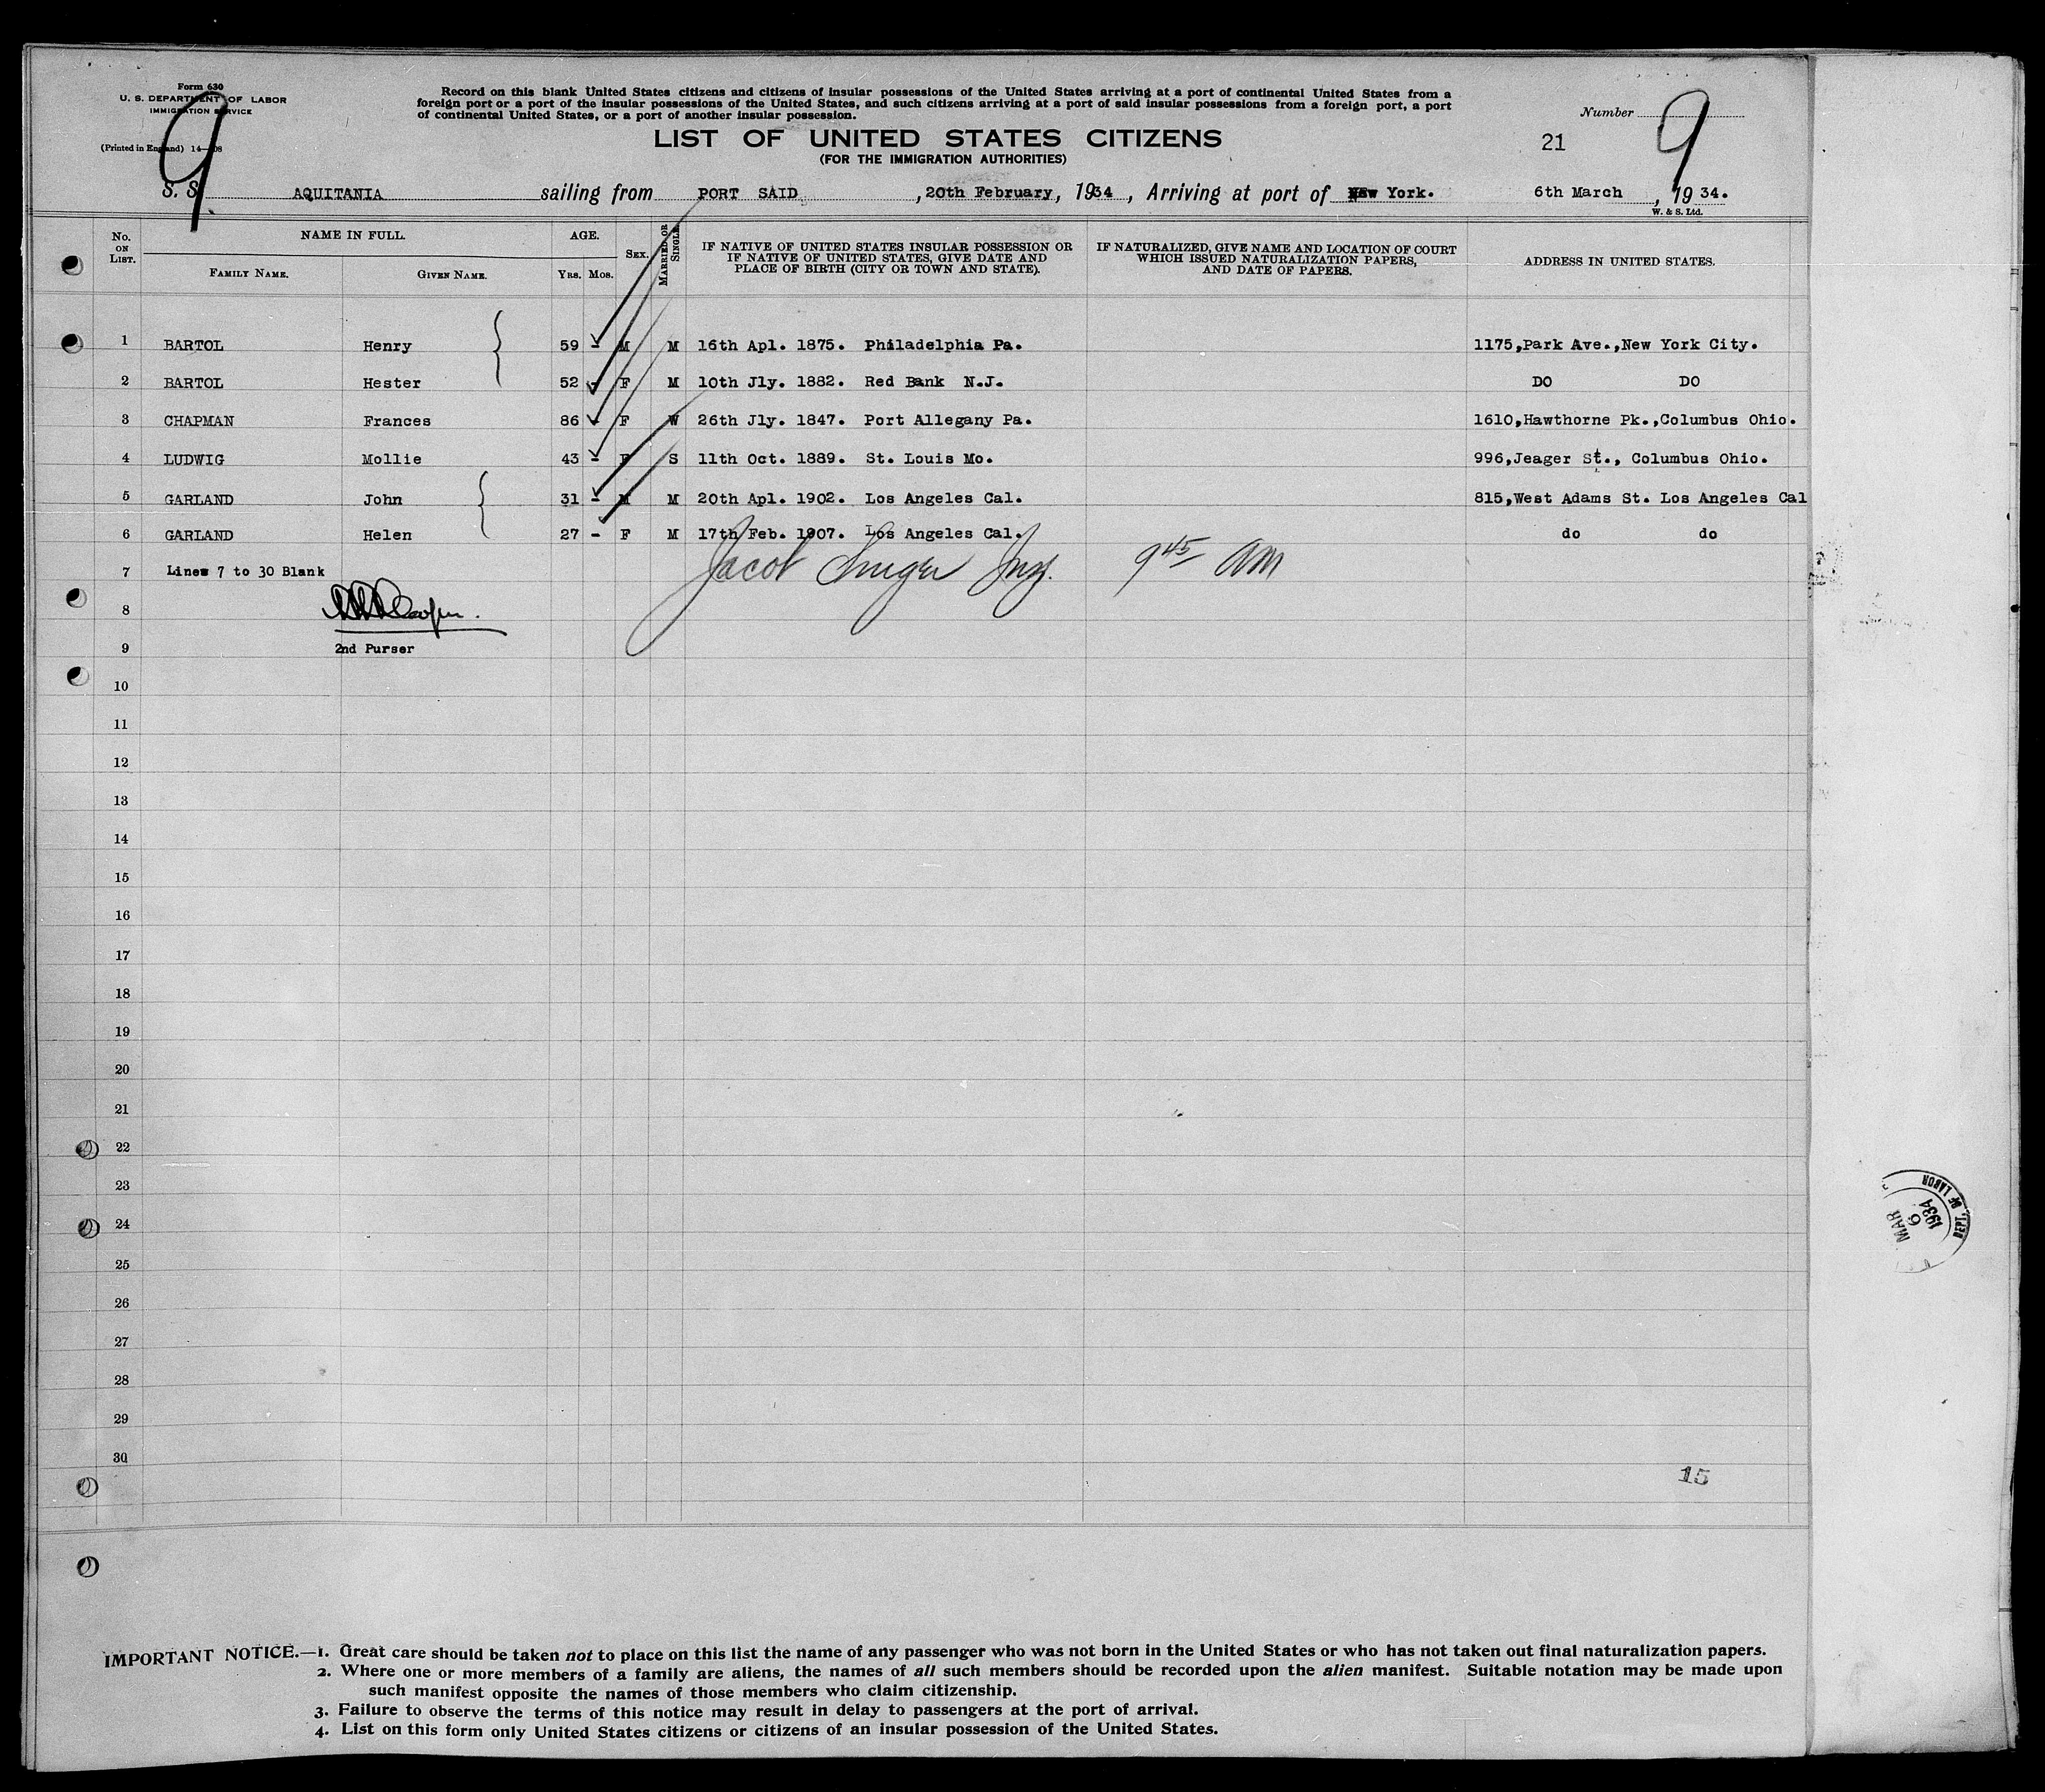 Form 630
U. S. DEPARTMENT OF LABOR
IMMIGRATION SERVICE
(Printed in England) 14—
9
Record on this blank United States citizens and citizens of insular possessions of the United States arriving at a port of continental United States from a
foreign port or a port of the insular possessions of the United States, and such citizens arriving at a port of said insular possessions from a foreign port, a port
of continental United States, or a port of another insular possession.
LIST OF UNITED STATES CITIZENS
(FOR THE IMMIGRATION AUTHORITIES)
Number 9
21
S. S. AQUITANIA sailing from PORT SAID, 20th February, 1934, Arriving at port of New York. 6th March, 1934.
W. & S. Ltd.
No. ON LIST. NAME IN FULL. AGE. SEX. MARRIED OR SINGLE. IF NATIVE OF UNITED STATES INSULAR POSSESSION OR IF NATIVE OF UNITED STATES, GIVE DATE AND PLACE OF BIRTH (CITY OR TOWN AND STATE). IF NATURALIZED, GIVE NAME AND LOCATION OF COURT WHICH ISSUED NATURALIZATION PAPERS, AND DATE OF PAPERS. ADDRESS IN UNITED STATES.
FAMILY NAME. GIVEN NAME. YRS. MOS.
1 BARTOL Henry 59 - M M 16th Apl. 1875. Philadelphia Pa. 1175,Park Ave.,New York City.
2 BARTOL Hester 52 - F M 10th Jly. 1882. Red Bank N.J. DO DO
3 CHAPMAN Frances 86 - F W 26th Jly. 1847. Port Allegany Pa. 1610,Hawthorne Pk.,Columbus Ohio.
4 LUDWIG Mollie 43 - F S 11th Oct. 1889. St. Louis Mo. 996,Jeager St., Columbus Ohio.
5 GARLAND John 31 - M M 20th Apl. 1902. Los Angeles Cal. 815,West Adams St. Los Angeles Cal
6 GARLAND Helen 27 - F M 17th Feb. 1907. Los Angeles Cal. do do
7 Lines 7 to 30 Blank Jacob 9 45 am
8
9 2nd Purser
10
11
12
13
14
15
16
17
18
19
20
21
22
23
24
25
26
27
28
29
30
15
DEPT. OF LABOR
MAR 6 1934
IMPORTANT NOTICE.—1. Great care should be taken not to place on this list the name of any passenger who was not born in the United States or who has not taken out final naturalization papers.
2. Where one or more members of a family are aliens, the names of all such members should be recorded upon the alien manifest. Suitable notation may be made upon
such manifest opposite the names of those members who claim citizenship.
3. Failure to observe the terms of this notice may result in delay to passengers at the port of arrival.
4. List on this form only United States citizens or citizens of an insular possession of the United States.